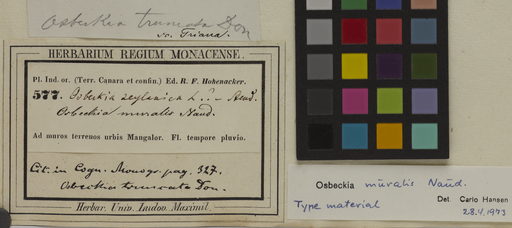 Osbeckia truncata Don
Triana.
HERBARIUM REGIUM MONACENSE.
Pl. Ind. or. (Terr. Canara et confin.) Ed. R. F. Hohenacker.
577. Osbeckia zeylanica L. ? —
Osbeckia muralis Naud.
Ad muros terrenos urbis Mangalor. Fl. tempore pluvio.
Cit. in Cogn. Monogr. pag. 327.
Osbeckia truncata Don.
Herbar. Univ. Ludov. Maximil.
Osbeckia muralis Naud.
Type material
Det. Carlo Hansen
28.4.1973